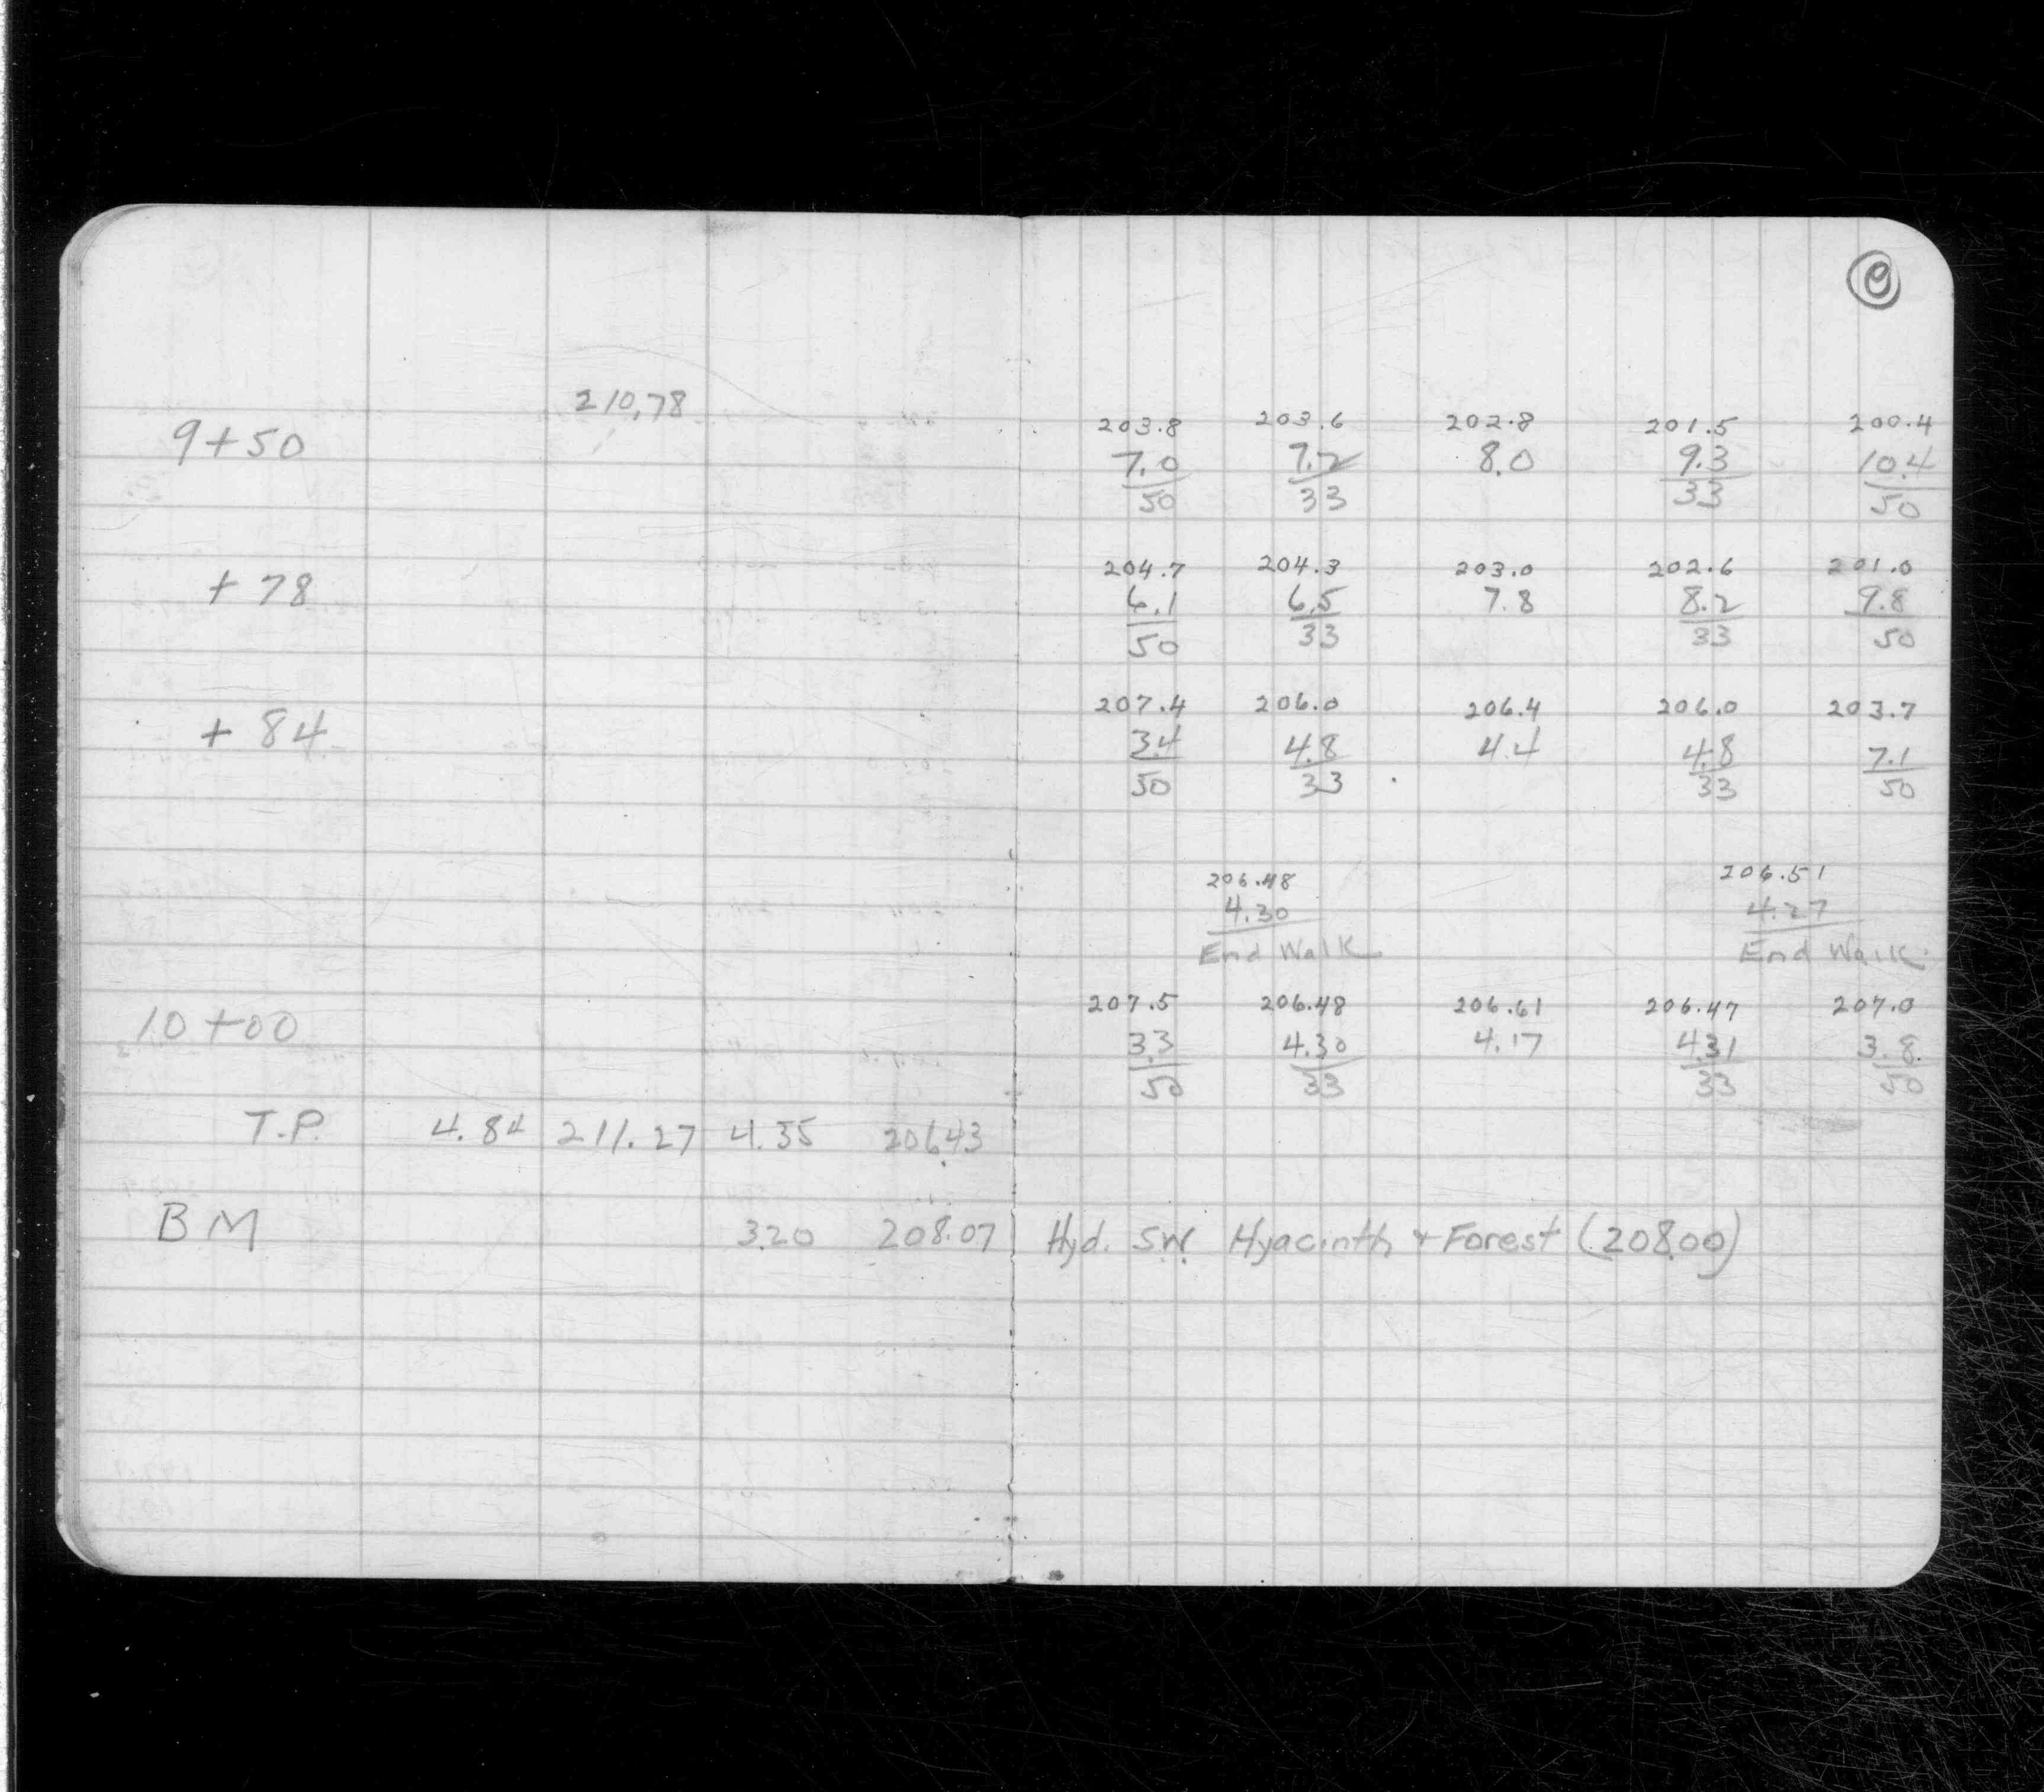 210.78
9+50
+ 78
+ 84
10+00
T.P. 4.84 211.27 4.35 206.43
BM 3.20 208.07
203.8 203.6 202.8 201.5 200.4
7.0 7.2 8.0 9.3 10.4
50 33 33 50
204.7 204.3 203.0 202.6 201.0
6.1 6.5 7.8 8.2 9.8
50 33 33 50
207.4 206.0 206.4 206.0 203.7
3.4 4.8 4.4 4.8 7.1
50 33 33 50
206.48 206.51
4.30 4.27
End Walk End Walk
207.5 206.48 206.61 206.47 207.0
3.3 4.30 4.17 4.31 3.8
50 33 33 50
Hyd. S.W. Hyacinth + Forest (208.00)